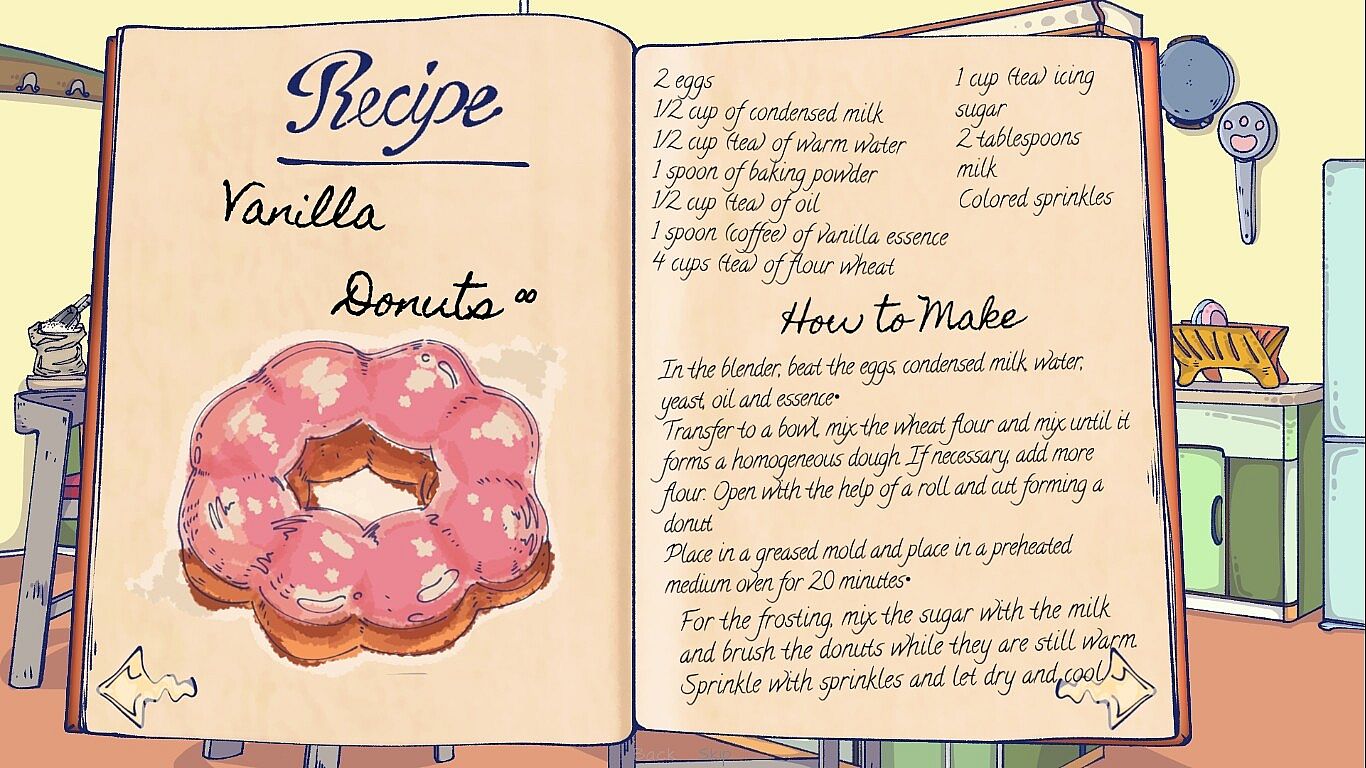 Recipe
Vanilla
Donuts
2 eggs
1/2 cup of condensed milk
1/2 cup (tea) of warm water
1 spoon of baking powder
1/2 cup (tea) of oil
1 spoon (coffee) of vanilla essence
4 cups (tea) of flour wheat
1 cup (tea) icing
sugar
2 tablespoons
milk
Colored sprinkles
How to Make
In the blender, beat the eggs, condensed milk, water,
yeast, oil and essence•
Transfer to a bowl, mix the wheat flour and mix until it
forms a homogeneous dough. If necessary, add more
flour. Open with the help of a roll and cut forming a
donut.
Place in a greased mold and place in a preheated
medium oven for 20 minutes•
For the frosting, mix the sugar with the milk
and brush the donuts while they are still warm.
Sprinkle with sprinkles and let dry and cool.
Back Skip